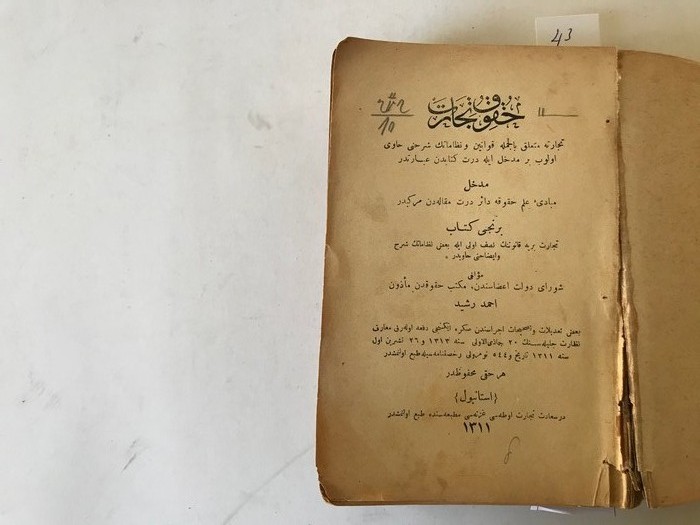 43
حقوق تجارت
10
تجارته متعلق بالجمله قوانین و نظاماتك شرحنی حاوی
اولوب بر مدخل ایله درت کتابدن عبارتدر
مدخل
مبادیٔ علم حقوقه دائر درت مقاله‌دن مرکبدر
برنجی کتاب
تجارت بریه قانوننك نصف اولی ایله بعض نظاماتك شرح
وایضاحنی حاویدر
مؤلفی
شورای دولت اعضاسندن، مکتب حقوقدن مأذون
احمد رشید
بعض تعدیلات و تصحیحات اجراسندن صکره ایکنجی دفعه اوله‌رق معارف
نظارت جلیله‌سنك ٢٠ جمادی‌الاولی سنه ١٣١٣ و ٢٦ تشرین اول
سنه ١٣١١ تاریخ و ٥٤٤ نومرولی رخصتنامه‌سیله طبع اولنمشدر
هر حقی محفوظدر
{استانبول}
درسعادت تجارت اوطه‌سی غزته‌سی مطبعه‌سنده طبع اولنمشدر
١٣١١